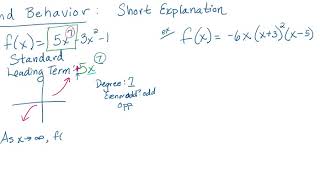 nd Behavior: Short Explanation
f(x) = 5x⑦ - 3x² - 1
Standard
Leading Term: +5x⑦
Degree: 7
odd
opp
As x→∞, f(
ex f(x) = -6x(x+3)²(x-5)